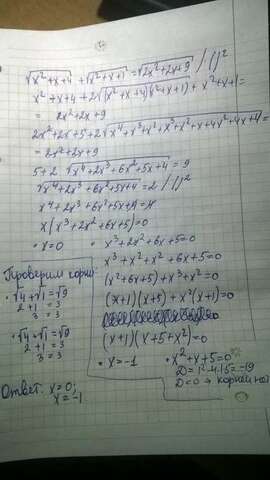 √x²+x+4 + √x²+x+1 = √2x²+2x+9 / ()²
x²+x+4+2√(x²+x+4)(x²+x+1) + x²+x+1=
= 2x²+2x+9
2x²+2x+5+2√x⁴+x³+x²+x³+x²+x+4x²+4x+4=
=2x²+2x+9
5+2√x⁴+2x³+6x²+5x+4=9
√x⁴+2x³+6x²+5x+4=2 / ()²
x⁴+2x³+6x²+5x+4=4
x(x³+2x²+6x+5)=0
• x=0
• x³+2x²+6x+5=0
x³+x²+x²+6x+5=0
(x²+6x+5)+x³+x²=0
(x+1)(x+5)+x²(x+1)=0
(x+1)(x+5+x²)=0
• x=-1
• x²+x+5=0
D=1²-4·1·5=-19
D<0 → корней нет
Проверим корни:
• √4+√1=√9
2+1=3
3=3
• √4+√1=√9
2+1=3
3=3
Ответ: x=0;
x=-1